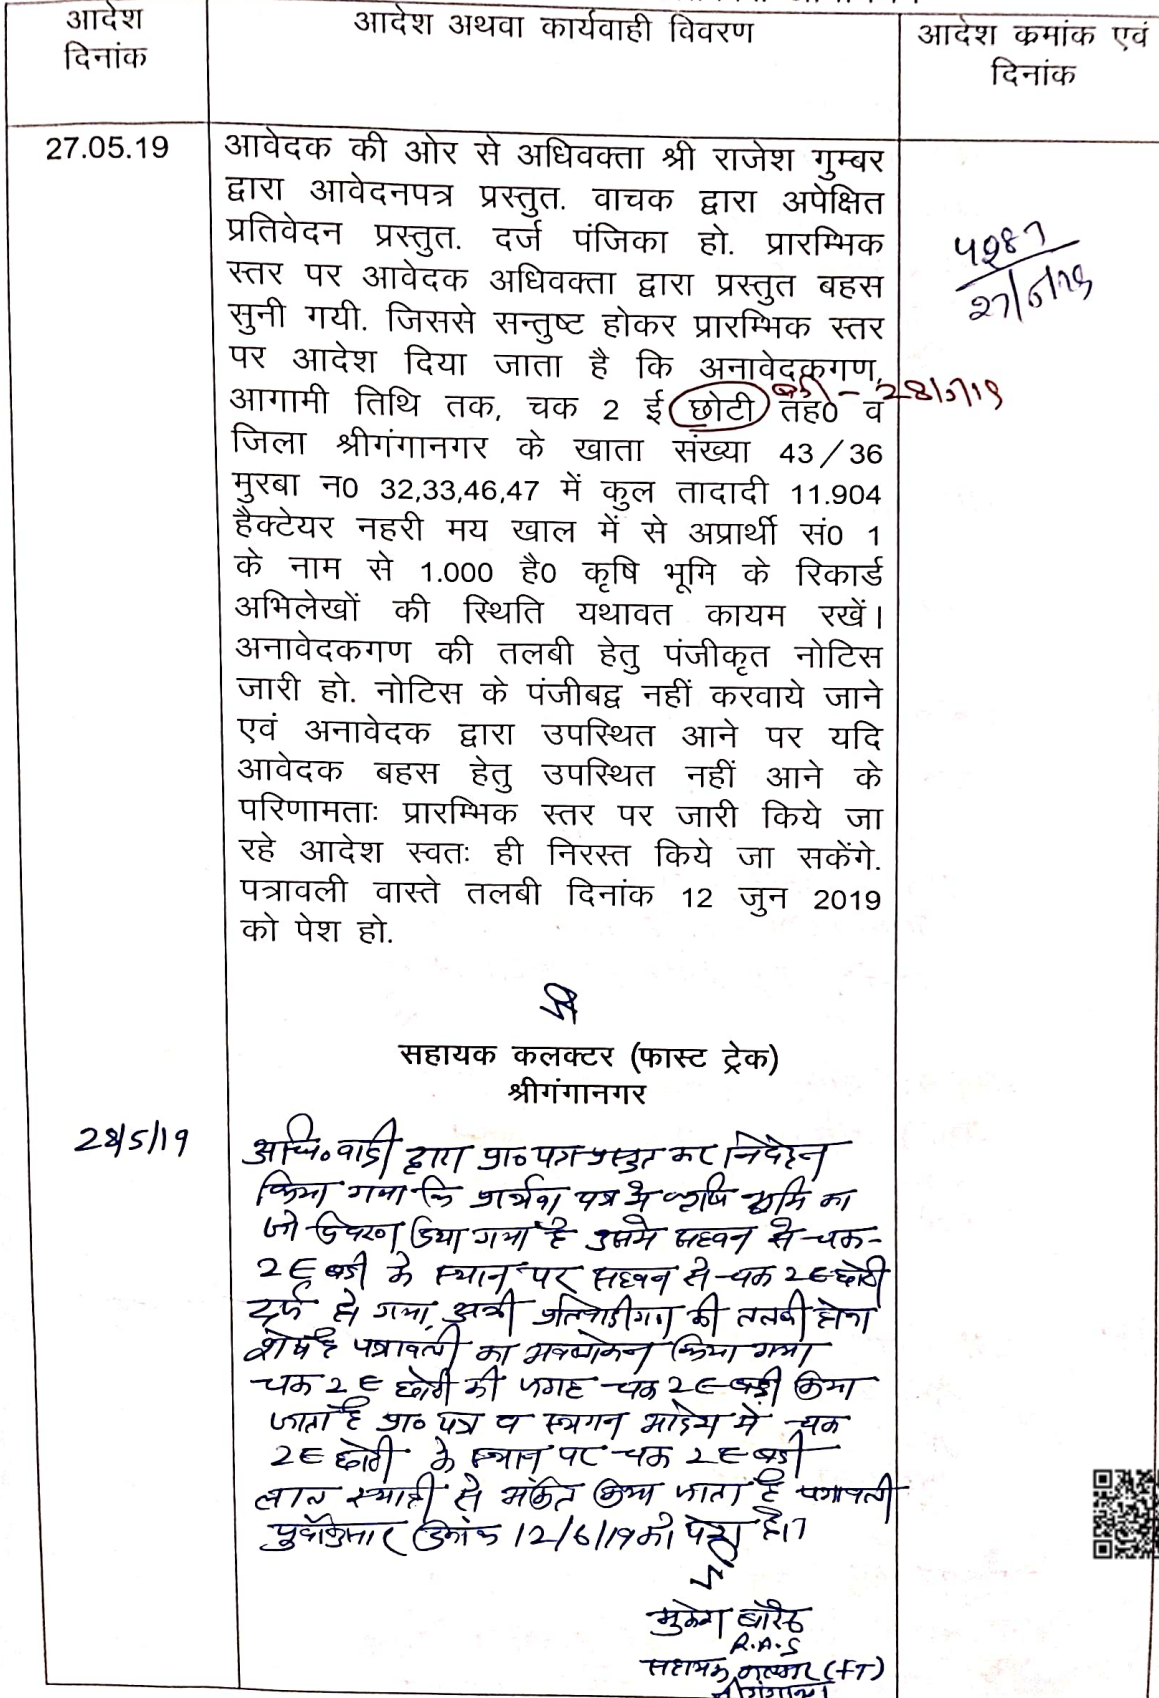 आदेश
दिनांक
आदेश अथवा कार्यवाही विवरण
आदेश क्रमांक एवं
दिनांक
27.05.19
आवेदक की ओर से अधिवक्ता श्री राजेश गुम्बर
द्वारा आवेदनपत्र प्रस्तुत. वाचक द्वारा अपेक्षित
प्रतिवेदन प्रस्तुत. दर्ज पंजिका हो. प्रारम्भिक
स्तर पर आवेदक अधिवक्ता द्वारा प्रस्तुत बहस
सुनी गयी. जिससे सन्तुष्ट होकर प्रारम्भिक स्तर
पर आदेश दिया जाता है कि अनावेदकगण,
आगामी तिथि तक, चक 2 ई छोटी तह0 व
बड़ी - 28/5/19
जिला श्रीगंगानगर के खाता संख्या 43/36
मुरबा न0 32,33,46,47 में कुल तादादी 11.904
हैक्टेयर नहरी मय खाल में से अप्रार्थी सं0 1
के नाम से 1.000 है0 कृषि भूमि के रिकार्ड
अभिलेखों की स्थिति यथावत कायम रखें।
अनावेदकगण की तलबी हेतु पंजीकृत नोटिस
जारी हो. नोटिस के पंजीबद्व नहीं करवाये जाने
एवं अनावेदक द्वारा उपस्थित आने पर यदि
आवेदक बहस हेतु उपस्थित नहीं आने के
परिणामताः प्रारम्भिक स्तर पर जारी किये जा
रहे आदेश स्वतः ही निरस्त किये जा सकेंगे.
पत्रावली वास्ते तलबी दिनांक 12 जुन 2019
को पेश हो.
सहायक कलक्टर (फास्ट ट्रेक)
श्रीगंगानगर
28/5/19
अधि० वादी द्वारा प्रा० पत्र प्रस्तुत कर निवेदन
किया गया कि प्रार्थना पत्र मे कृषि भूमि का
जो विवरण दिया गया है उसमे सहवन से चक-
2E बडी के स्थान पर सहवन से चक 2E छोटी
दर्ज हो गया, अभी प्रतिवादीगण की तलबी होना
शेष है पत्रावली का अवलोकन किया गया
चक 2E छोटी की जगह चक 2E बड़ी किया
जाता है प्रा० पत्र व स्थगन आदेश में चक
2E छोटी के स्थान पर चक 2E बडी
लाल स्याही से अंकित किया जाता है पत्रावली
पुर्वानुसार दिनांक 12/6/19 को पेश हो।
मुकेश बारेठ
R.A.S
सहायक कलक्टर (FT)
श्रीगंगानगर